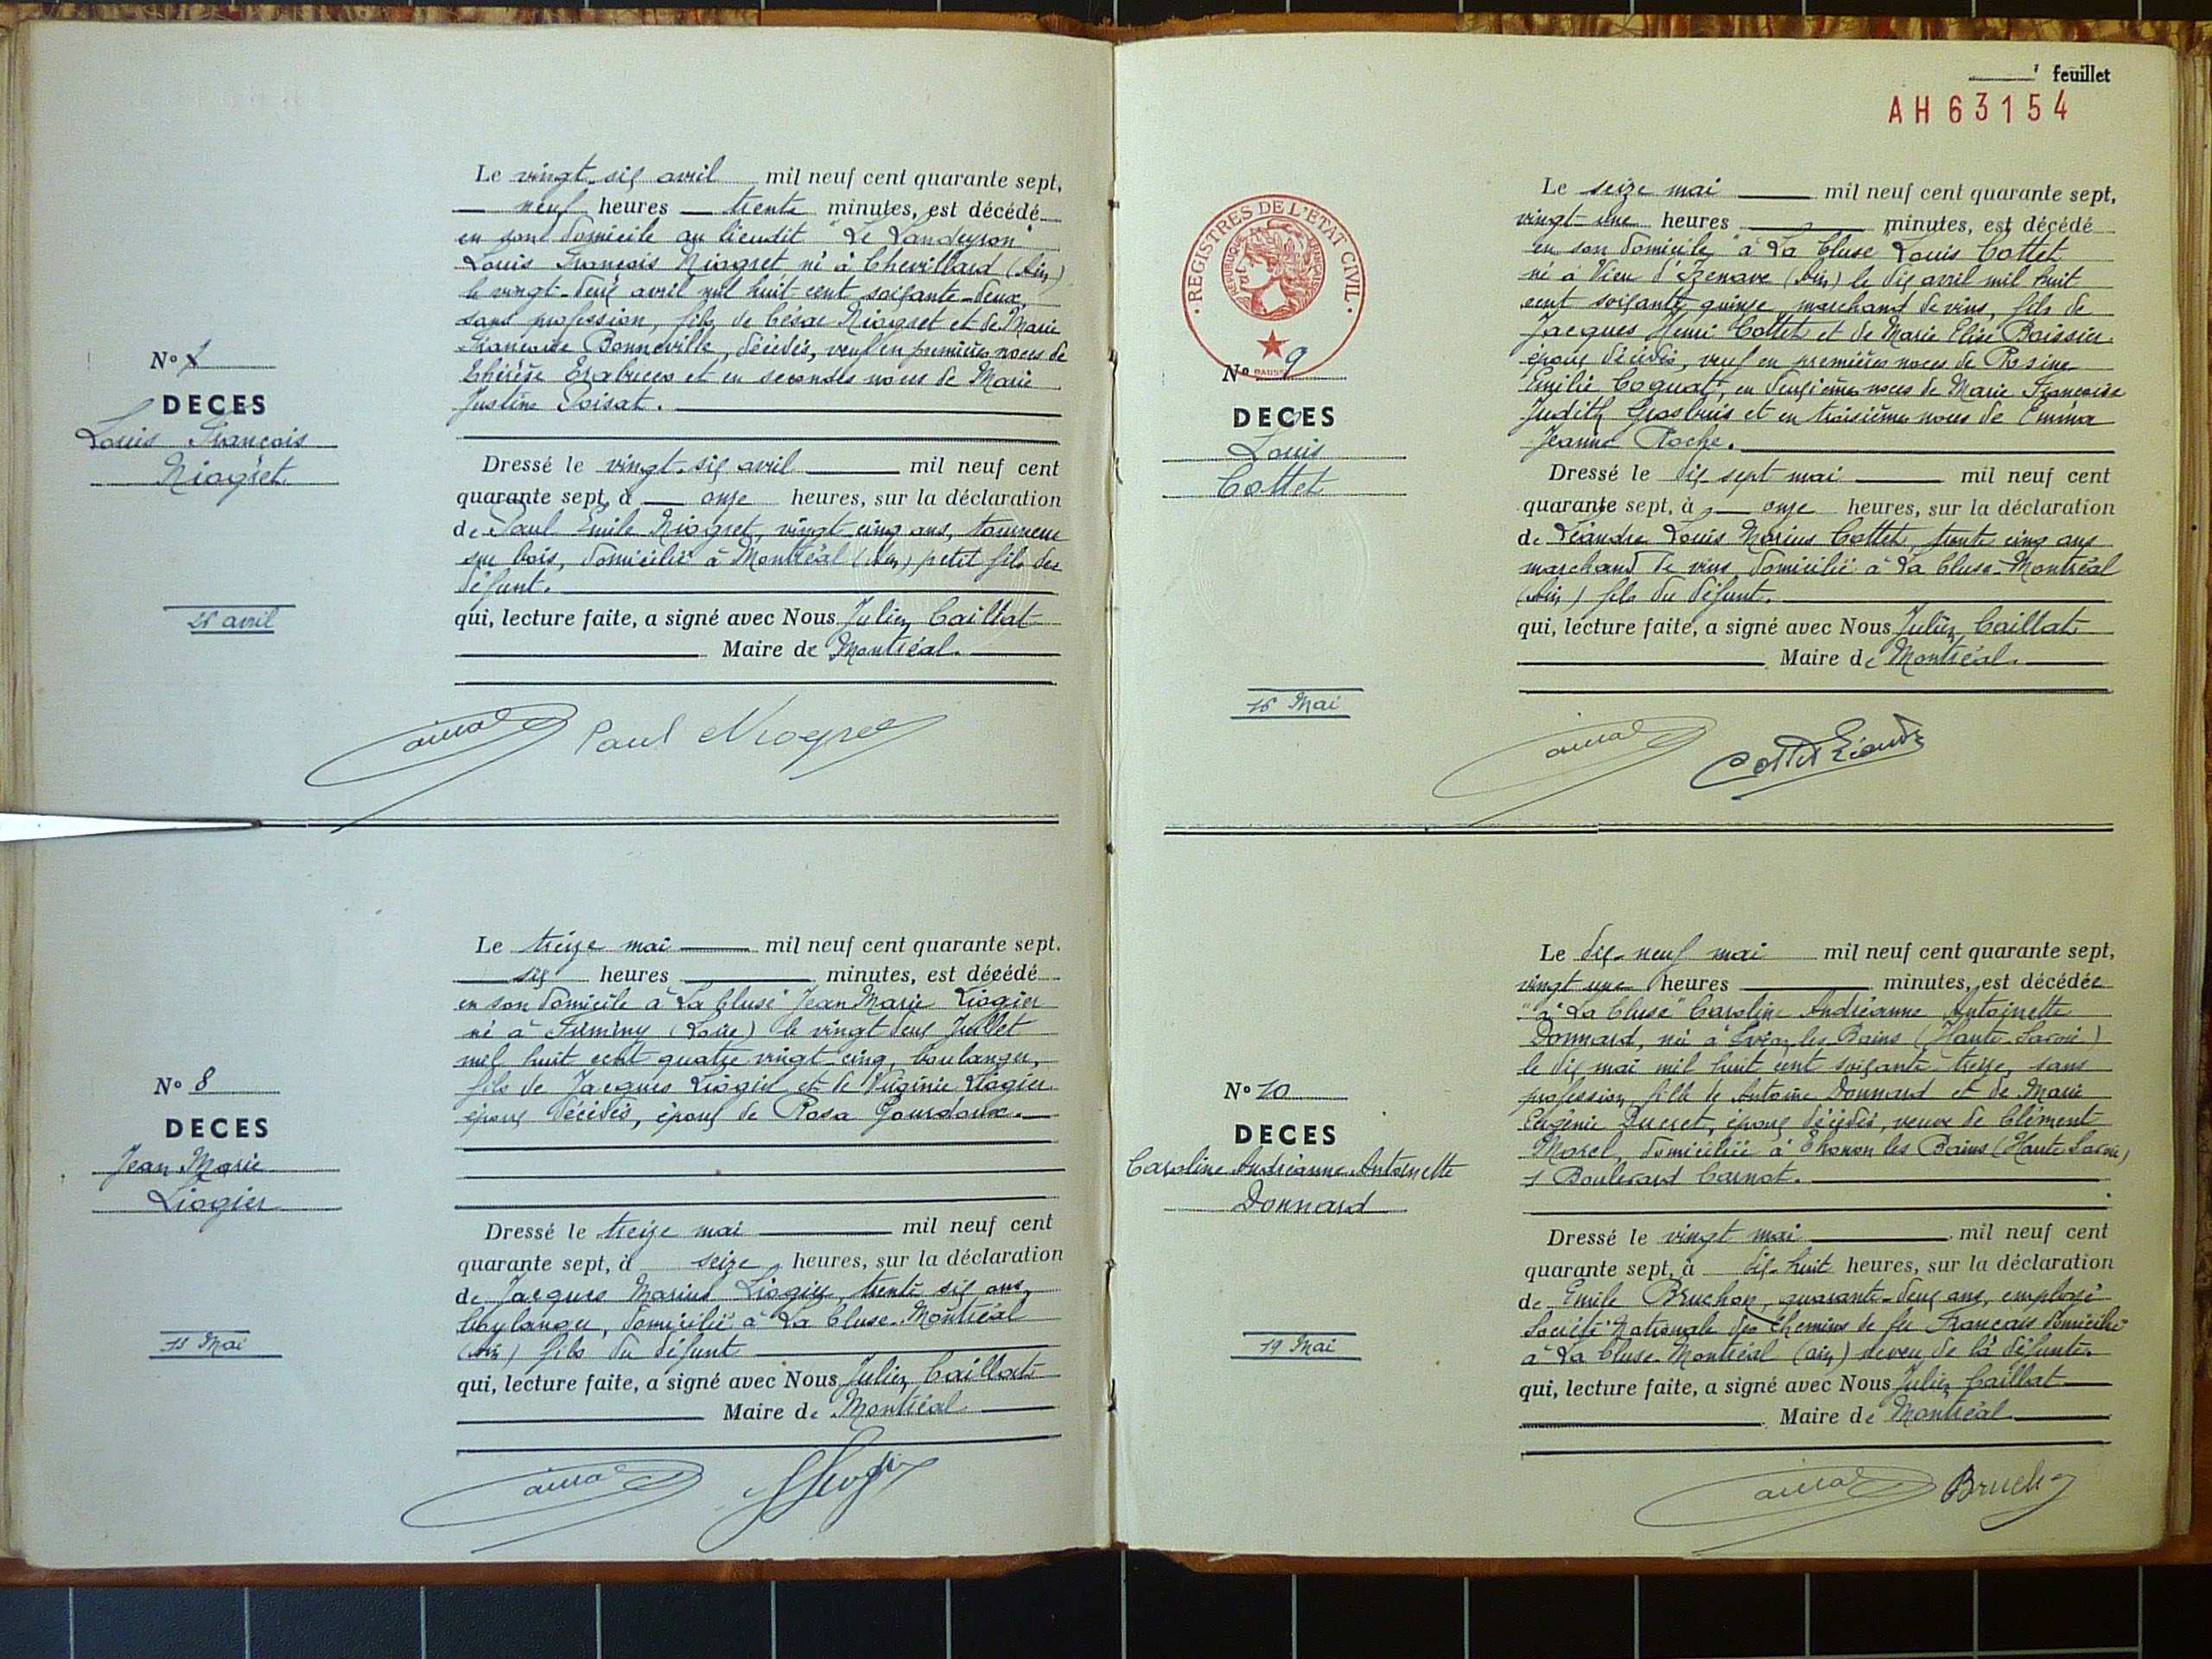 Le vingt-six avril mil neuf cent quarante sept,
neuf heures trente minutes, est décédé
en son domicile au lieudit "Le Landeyron"
Louis François Niogret né à Chevillard (Ain)
le vingt-deux avril mil huit cent soixante-deux,
sans profession, fils de César Niogret et de Marie
Françoise Bonneville, décédés, veuf en premières noces de
Thérèse et en secondes noces de Marie
Justine Poisat.
Nº 7
DECES
Louis François
Niogret
26 avril
Dressé le vingt-six avril mil neuf cent
quarante sept, à onze heures, sur la déclaration
de Paul Emile Niogret, vingt cinq ans, tourneur
sur bois, domicilié à Montréal (Ain) petit fils du
défunt.
qui, lecture faite, a signé avec Nous Julien Caillat
Maire de Montréal.
Paul Niogret
Le treize mai mil neuf cent quarante sept.
six heures minutes, est décédé
en son domicile à La Cluse" Jean Marie Liogier
né à Firminy (Loire) le vingt deux Juillet
mil huit cent quatre vingt-cinq, boulanger,
fils de Jacques Liogier et de Virginie Liogier
époux décédés, époux de Rosa Gourdoux.
Nº 8
DECES
Jean Marie
Liogier
13 Mai
Dressé le treize mai mil neuf cent
quarante sept, à seize heures, sur la déclaration
de Jacques Marius Liogier, trente six ans,
boulanger, domicilié à La Cluse-Montréal
(Ain) fils du défunt
qui, lecture faite, a signé avec Nous Julien Caillat
Maire de Montréal
feuillet
AH63154
REGISTRES DE L'ÉTAT CIVIL
REPUBLIQUE FRANÇAISE
Le seize mai mil neuf cent quarante sept,
vingt-une heures minutes, est décédé
en son domicile "à La Cluse Louis Cottet
né à Vieu d'Izenave (Ain) le dix avril mil huit
cent soixante quinze, marchand de vins, fils de
Jacques Henri Cottet et de Marie Elise Boissier
époux décédés, veuf en premières noces de Rosine
Emilie Coquat, en deuxièmes noces de Marie Françoise
Judith Grosbuis et en troisièmes noces de Emma
Jeanne Roche.
Nº 9
DECES
Louis
Cottet
16 Mai
Dressé le dix sept mai mil neuf cent
quarante sept, à onze heures, sur la déclaration
de Léandre Louis Marius Cottet, trente cinq ans
marchand de vins domicilié à La Cluse-Montréal
(Ain) fils du défunt.
qui, lecture faite, a signé avec Nous Julien Caillat
Maire de Montréal.
Cottet Léandre
Le dix-neuf mai mil neuf cent quarante sept,
vingt une heures minutes, est décédée
"à La Cluse" Caroline Andréanne Antoinette
Donnard, née à Evian les Bains (Haute-Savoie)
le dix mai mil huit cent soixante treize, sans
profession, fille de Antoine Donnard et de Marie
Eugénie Ducret, époux décédés, veuve de Clément
Morel, domiciliée à Thonon les Bains (Haute Savoie)
1 Boulevard Carnot.
Nº 10
DECES
Caroline Andréanne Antoinette
Donnard
19 Mai
Dressé le vingt mai mil neuf cent
quarante sept, à dix-huit heures, sur la déclaration
de Emile Bruchon, quarante-deux ans, employé
Société Nationale des Chemins de fer Français domicilié
à La Cluse-Montréal (ain) neveu de la défunte.
qui, lecture faite, a signé avec Nous Julien Caillat
Maire de Montréal
Bruchon